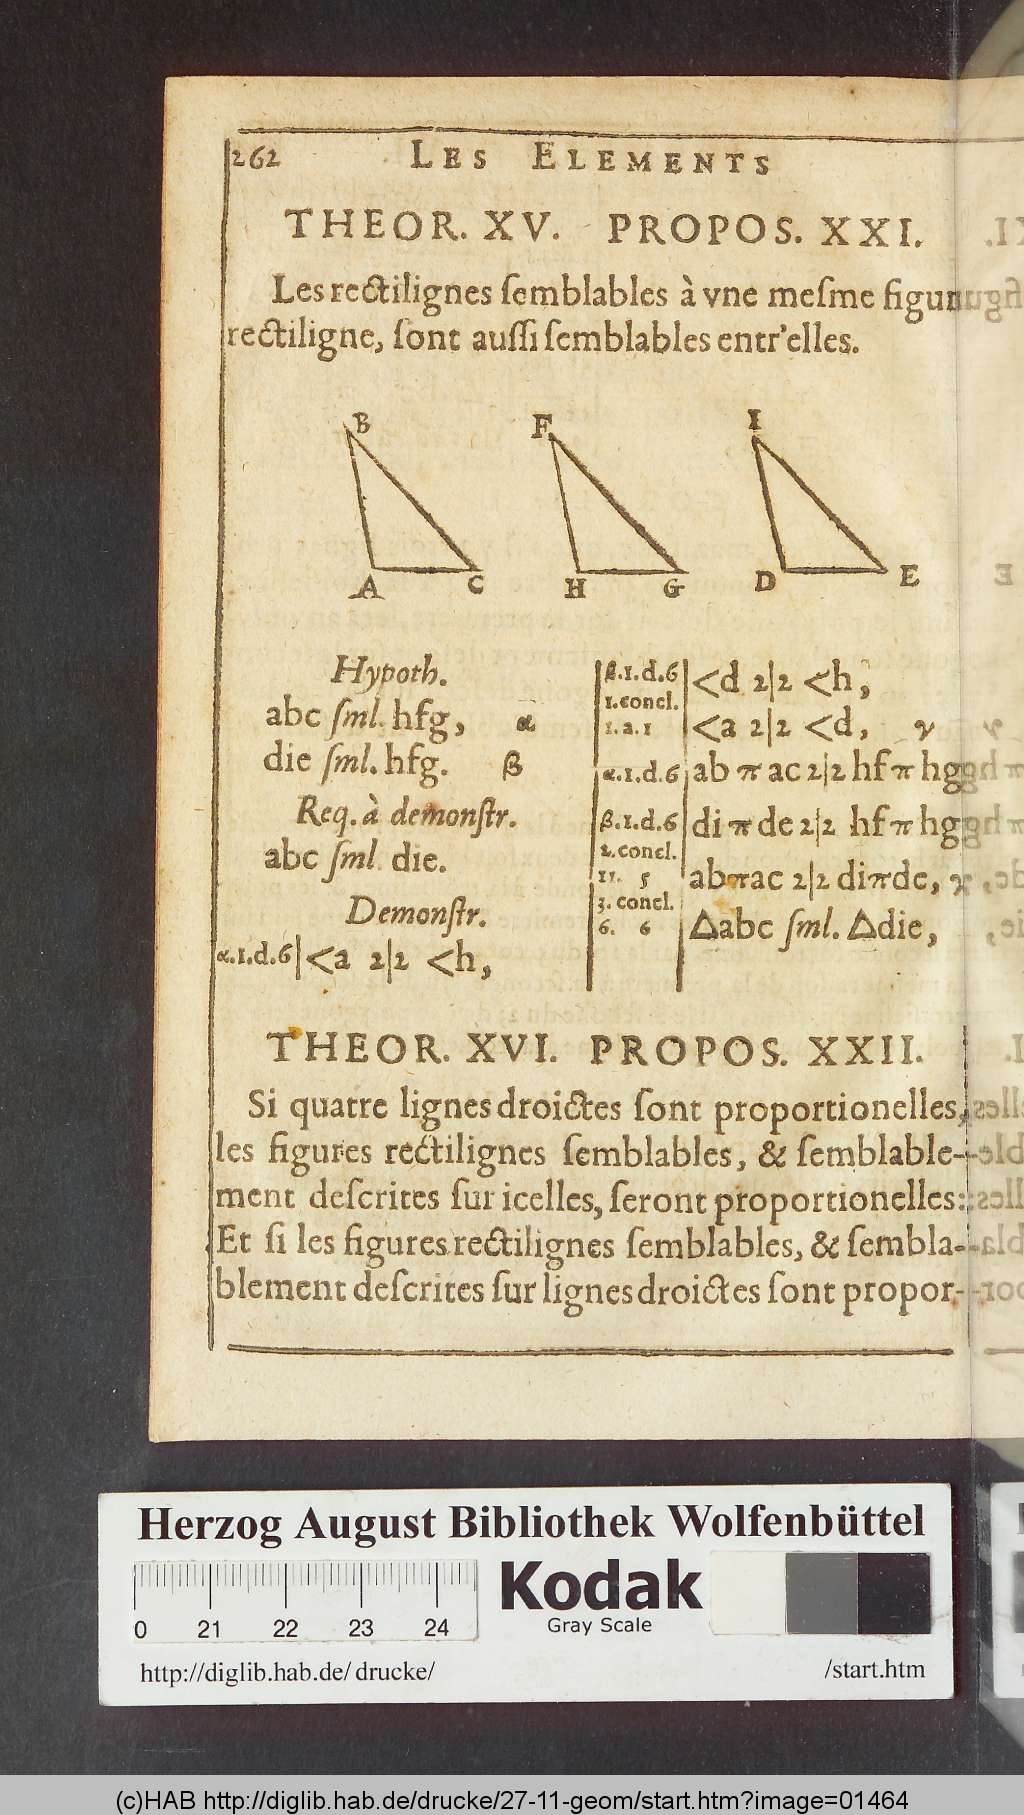 262 LES ELEMENTS
THEOR. XV. PROPOS. XXI.
Les rectilignes ſemblables à vne meſme figu
rectiligne, ſont auſſi ſemblables entr'elles.
B F I
A C H G D E
Hypoth.
abc ſml. hfg, α
die ſml. hfg. β
Req. à demonſtr.
abc ſml. die.
Demonſtr.
α.1.d.6| <a 2|2 <h,
β.1.d.6| <d 2|2 <h,
1.concl.
1.a.1 <a 2|2 <d, γ
α.1.d.6| ab π ac 2|2 hf π hg
β.1.d.6| di π de 2|2 hf π hg
2.concl.
11. 5 abπac 2|2 diπde, γ
3. concl.
6. 6 Δabc ſml. Δdie,
THEOR. XVI. PROPOS. XXII.
Si quatre lignes droictes ſont proportionelles,
les figures rectilignes ſemblables, & ſemblable-
ment deſcrites ſur icelles, ſeront proportionelles:
Et ſi les figures rectilignes ſemblables, & ſembla-
blement deſcrites ſur lignes droictes ſont propor-
Herzog August Bibliothek Wolfenbüttel
0 21 22 23 24
Kodak
Gray Scale
http://diglib.hab.de/drucke/ /start.htm
(c)HAB http://diglib.hab.de/drucke/27-11-geom/start.htm?image=01464